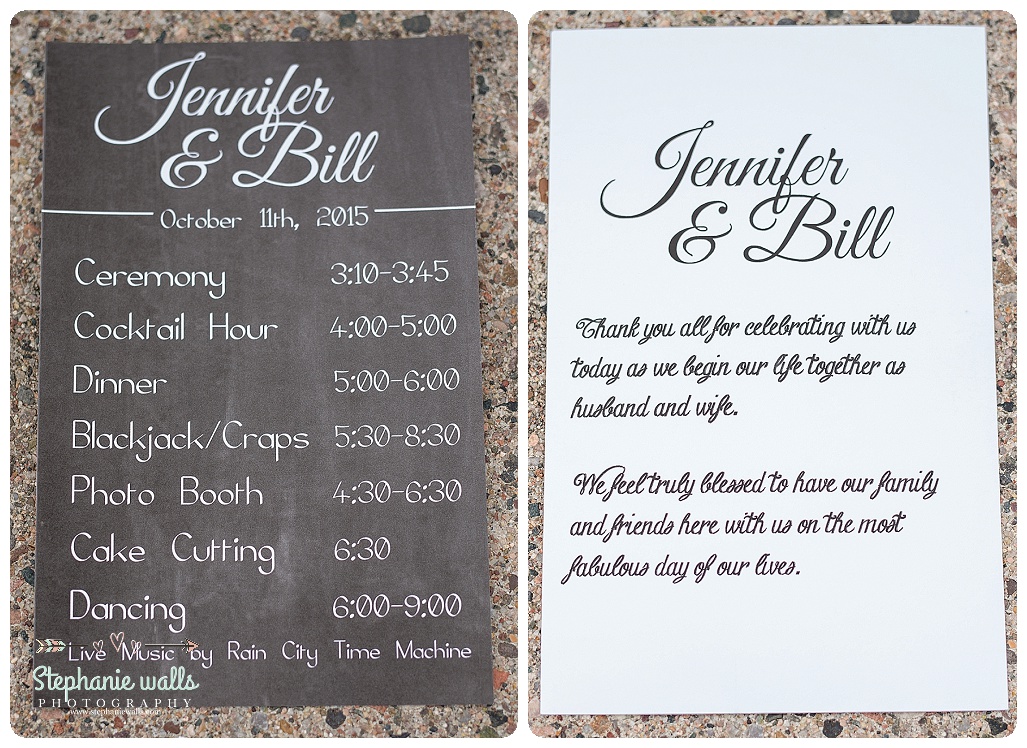 Jennifer
& Bill
October 11th, 2015
Ceremony 3:10-3:45
Cocktail Hour 4:00-5:00
Dinner 5:00-6:00
Blackjack/Craps 5:30-8:30
Photo Booth 4:30-6:30
Cake Cutting 6:30
Dancing 6:00-9:00
Live Music by Rain City Time Machine
Stephanie walls
PHOTOGRAPHY
www.stephaniewalls.com
Jennifer
& Bill
Thank you all for celebrating with us
today as we begin our life together as
husband and wife.
We feel truly blessed to have our family
and friends here with us on the most
fabulous day of our lives.